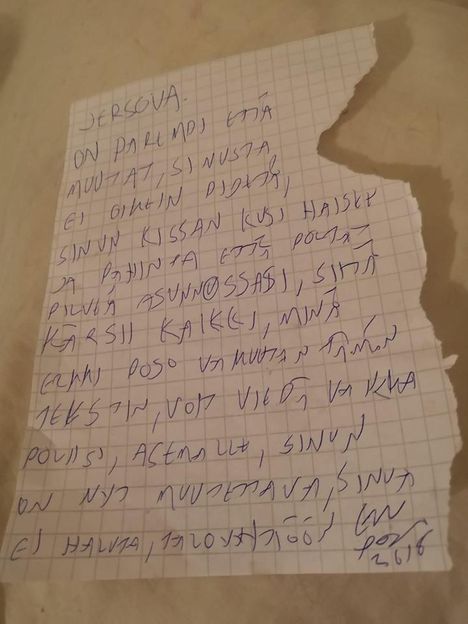 JERSOVA.
ON PAREMPI ETTÄ
MUUTAT, SINUSTA
EI OIKEIN PIDETÄ,
SINUN KISSAN KUSI HAISEE
JA PAHINTA ETTÄ POLTAT
PILVEÄ ASUNNOSSASI, SIITÄ
KÄRSII KAIKKI, MINÄ
ERKKI POSO VAHVISTAN TÄMÄN
TEKSTIN, VOIT VIEDÄ VAIKKA
POLIISI, ASEMALLE, SINUN
ON NYT MUUTETTAVA, SINUA
EI HALUTA, TALOYHTIÖÖN